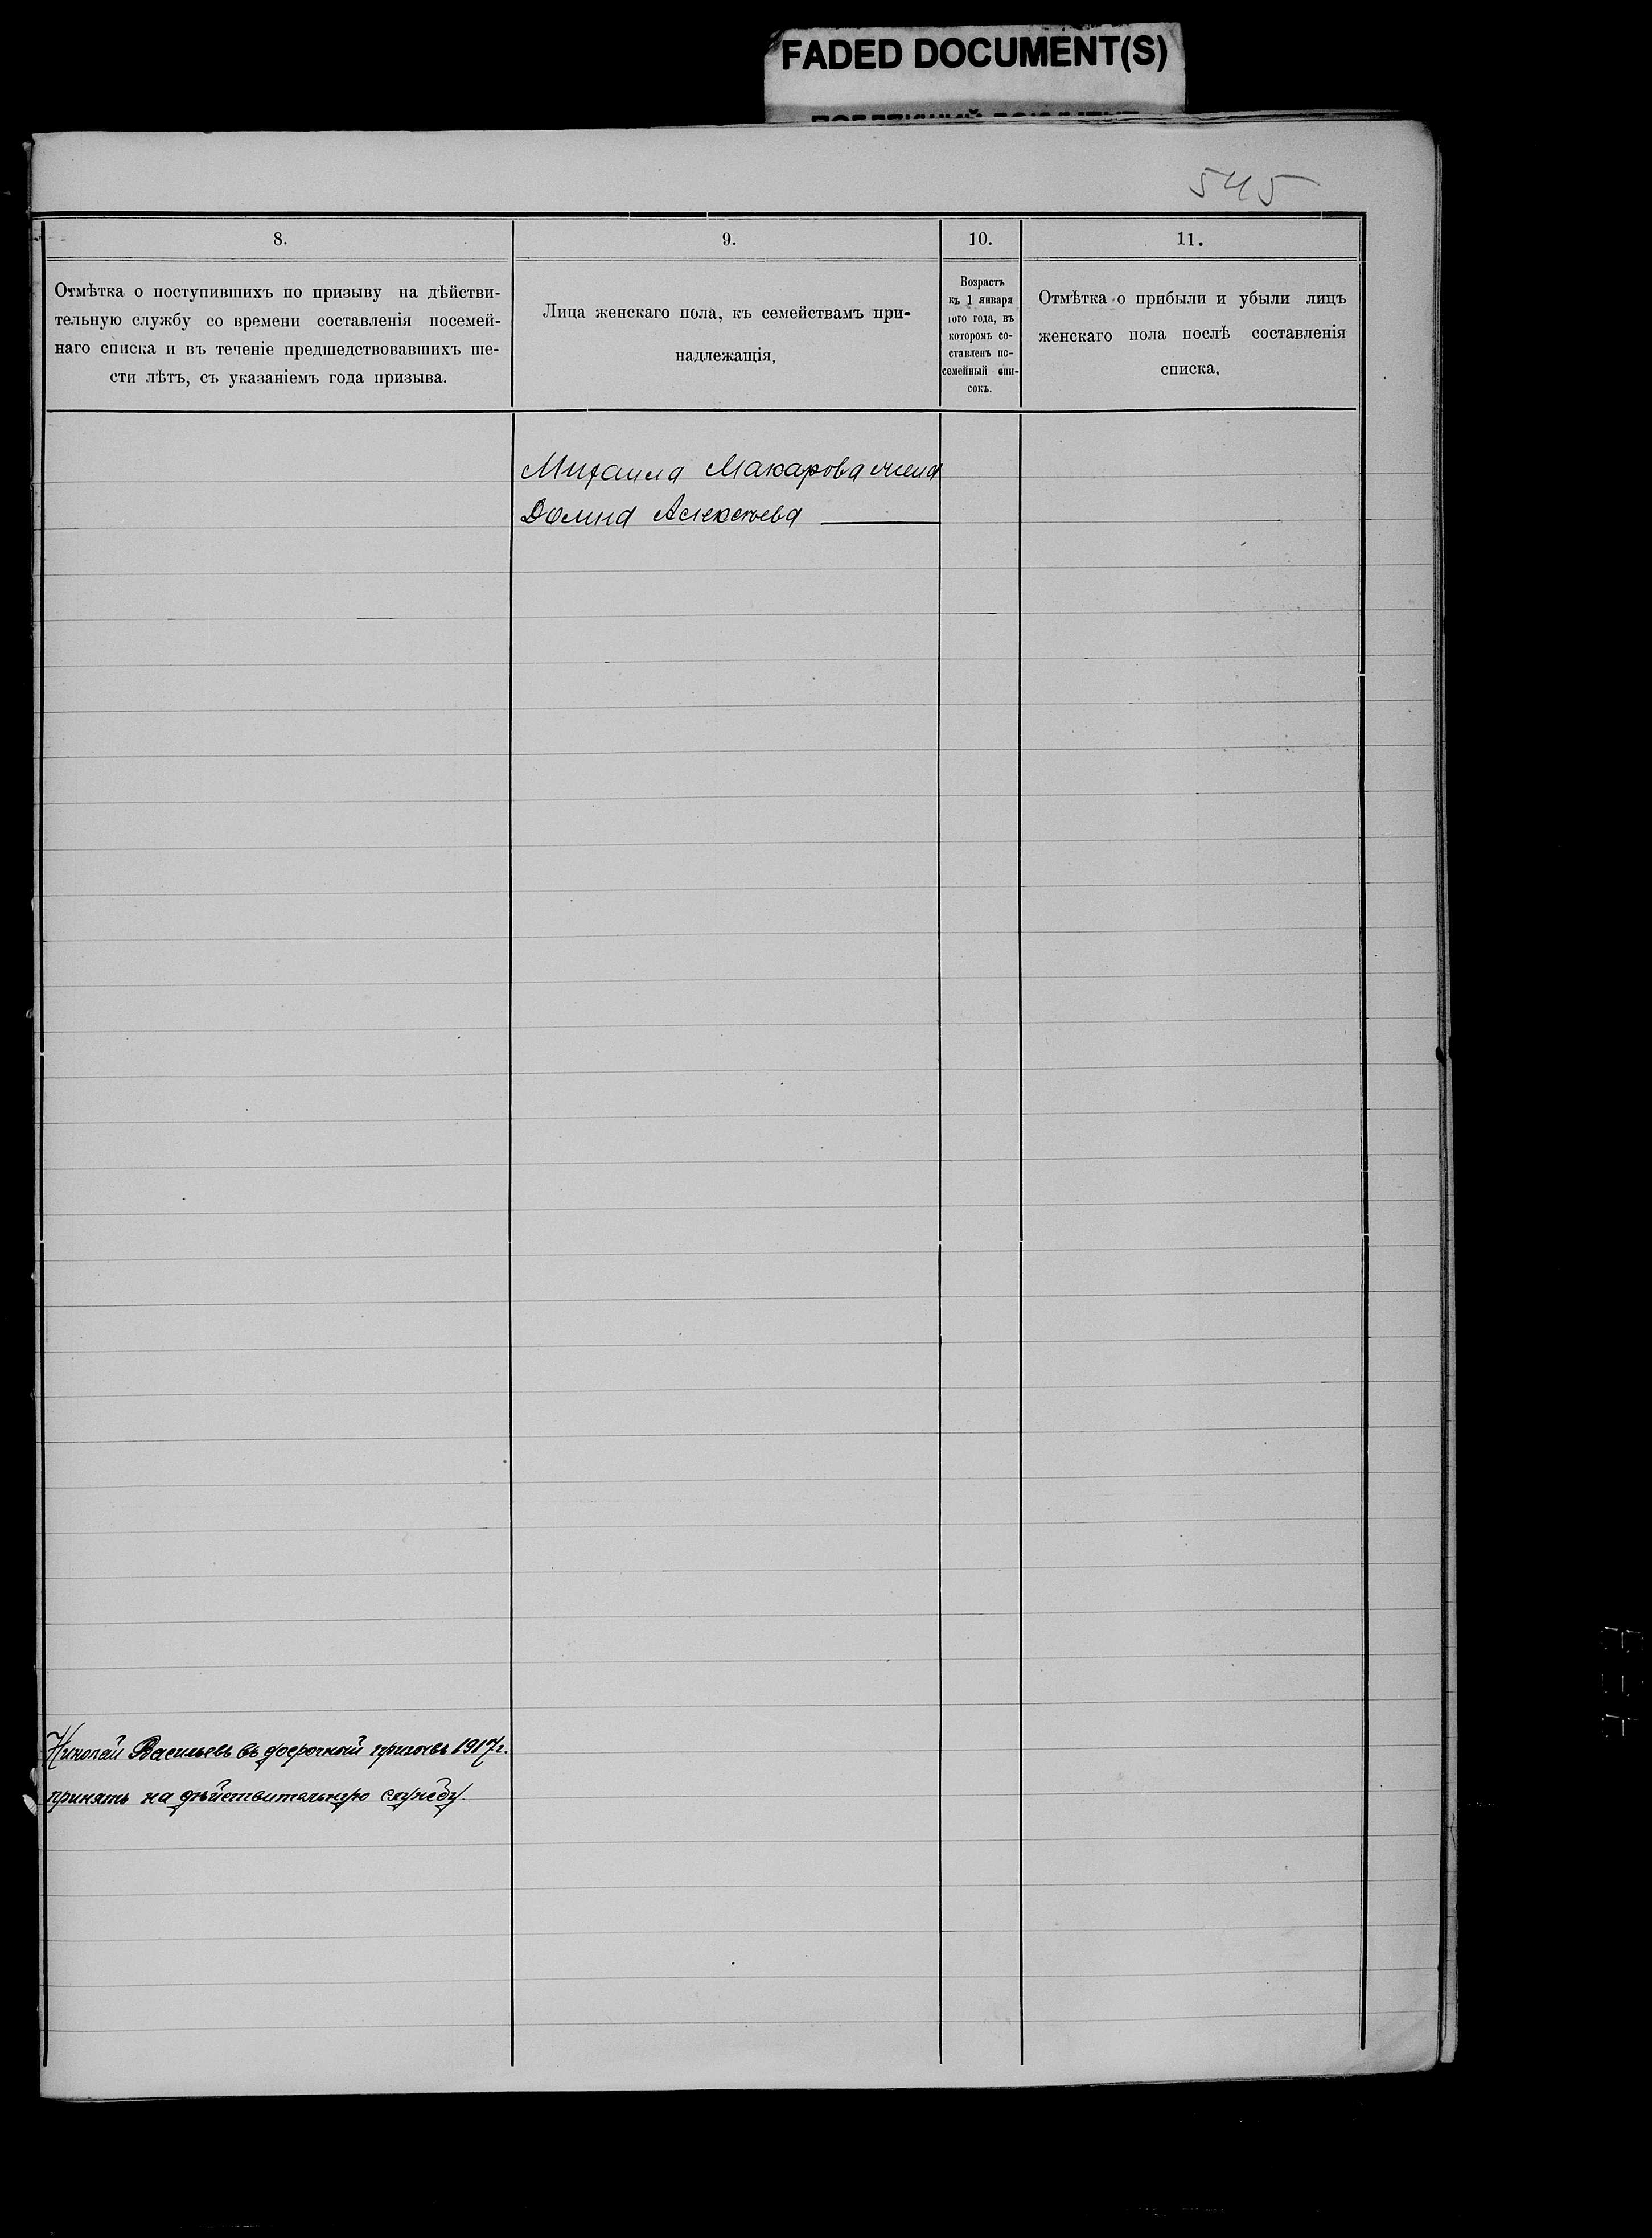 FADED DOCUMENT(S)
545
8.
9.
10.
11.
Отмѣтка о поступившихъ по призыву на дѣйстви-
тельную службу со времени составленія посемей-
наго списка и въ теченіе предшедствовавшихъ ше-
сти лѣтъ, съ указаніемъ года призыва.
Лица женскаго пола, къ семействамъ при-
надлежащія,
Возрастъ
къ 1 января
того года, въ
которомъ со-
ставленъ по-
семейный спи-
сокъ.
Отмѣтка о прибыли и убыли лицъ
женскаго пола послѣ составленія
списка,
Михаила Макарова жена
Домна Алексѣева
Николай Васильевъ въ досрочный призывъ 1917 г.
принятъ на дѣйствительную службу.